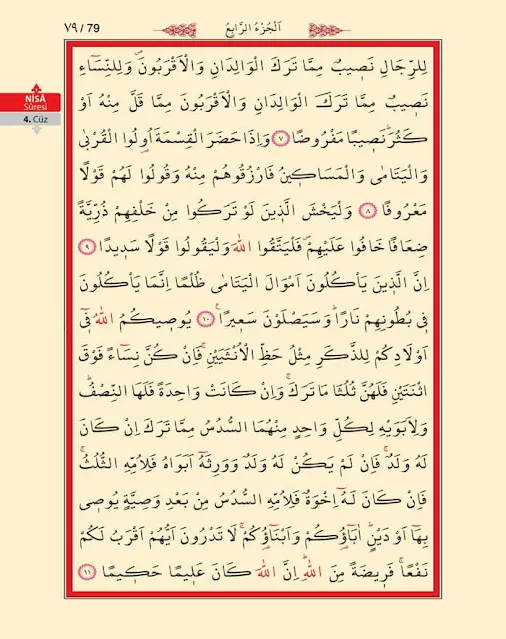 ٧٩ / 79
اَلْجُزْءُ الرَّابِعُ
NİSÂ
Sûresi
4. Cüz
لِلرِّجَالِ نَصٖيبٌ مِمَّا تَرَكَ الْوَالِدَانِ وَالْاَقْرَبُونَۖ وَلِلنِّسَٓاءِ
نَصٖيبٌ مِمَّا تَرَكَ الْوَالِدَانِ وَالْاَقْرَبُونَ مِمَّا قَلَّ مِنْهُ اَوْ
كَثُرَؕ نَصٖيبًا مَفْرُوضًا ﴿٧﴾ وَاِذَا حَضَرَ الْقِسْمَةَ اُولُوا الْقُرْبٰى
وَالْيَتَامٰى وَالْمَسَاكٖينُ فَارْزُقُوهُمْ مِنْهُ وَقُولُوا لَهُمْ قَوْلًا
مَعْرُوفًا ﴿٨﴾ وَلْيَخْشَ الَّذٖينَ لَوْ تَرَكُوا مِنْ خَلْفِهِمْ ذُرِّيَّةً
ضِعَافًا خَافُوا عَلَيْهِمْۖ فَلْيَتَّقُوا اللّٰهَ وَلْيَقُولُوا قَوْلًا سَدٖيدًا ﴿٩﴾
اِنَّ الَّذٖينَ يَأْكُلُونَ اَمْوَالَ الْيَتَامٰى ظُلْمًا اِنَّمَا يَأْكُلُونَ
فٖى بُطُونِهِمْ نَارًاؕ وَسَيَصْلَوْنَ سَعٖيرًا ﴿١٠﴾ يُوصٖيكُمُ اللّٰهُ فٖٓى
اَوْلَادِكُمْ لِلذَّكَرِ مِثْلُ حَظِّ الْاُنْثَيَيْنِۚ فَاِنْ كُنَّ نِسَٓاءً فَوْقَ
اثْنَتَيْنِ فَلَهُنَّ ثُلُثَا مَا تَرَكَۚ وَاِنْ كَانَتْ وَاحِدَةً فَلَهَا النِّصْفُؕ
وَلِاَبَوَيْهِ لِكُلِّ وَاحِدٍ مِنْهُمَا السُّدُسُ مِمَّا تَرَكَ اِنْ كَانَ
لَهُ وَلَدٌۚ فَاِنْ لَمْ يَكُنْ لَهُ وَلَدٌ وَوَرِثَهُٓ اَبَوَاهُ فَلِاُمِّهِ الثُّلُثُۚ
فَاِنْ كَانَ لَهُٓ اِخْوَةٌ فَلِاُمِّهِ السُّدُسُ مِنْ بَعْدِ وَصِيَّةٍ يُوصٖى
بِهَٓا اَوْ دَيْنٍؕ اٰبَٓاؤُ۬كُمْ وَاَبْنَٓاؤُ۬كُمْۚ لَا تَدْرُونَ اَيُّهُمْ اَقْرَبُ لَكُمْ
نَفْعًاۚ فَرٖيضَةً مِنَ اللّٰهِؕ اِنَّ اللّٰهَ كَانَ عَلٖيمًا حَكٖيمًا ﴿١١﴾